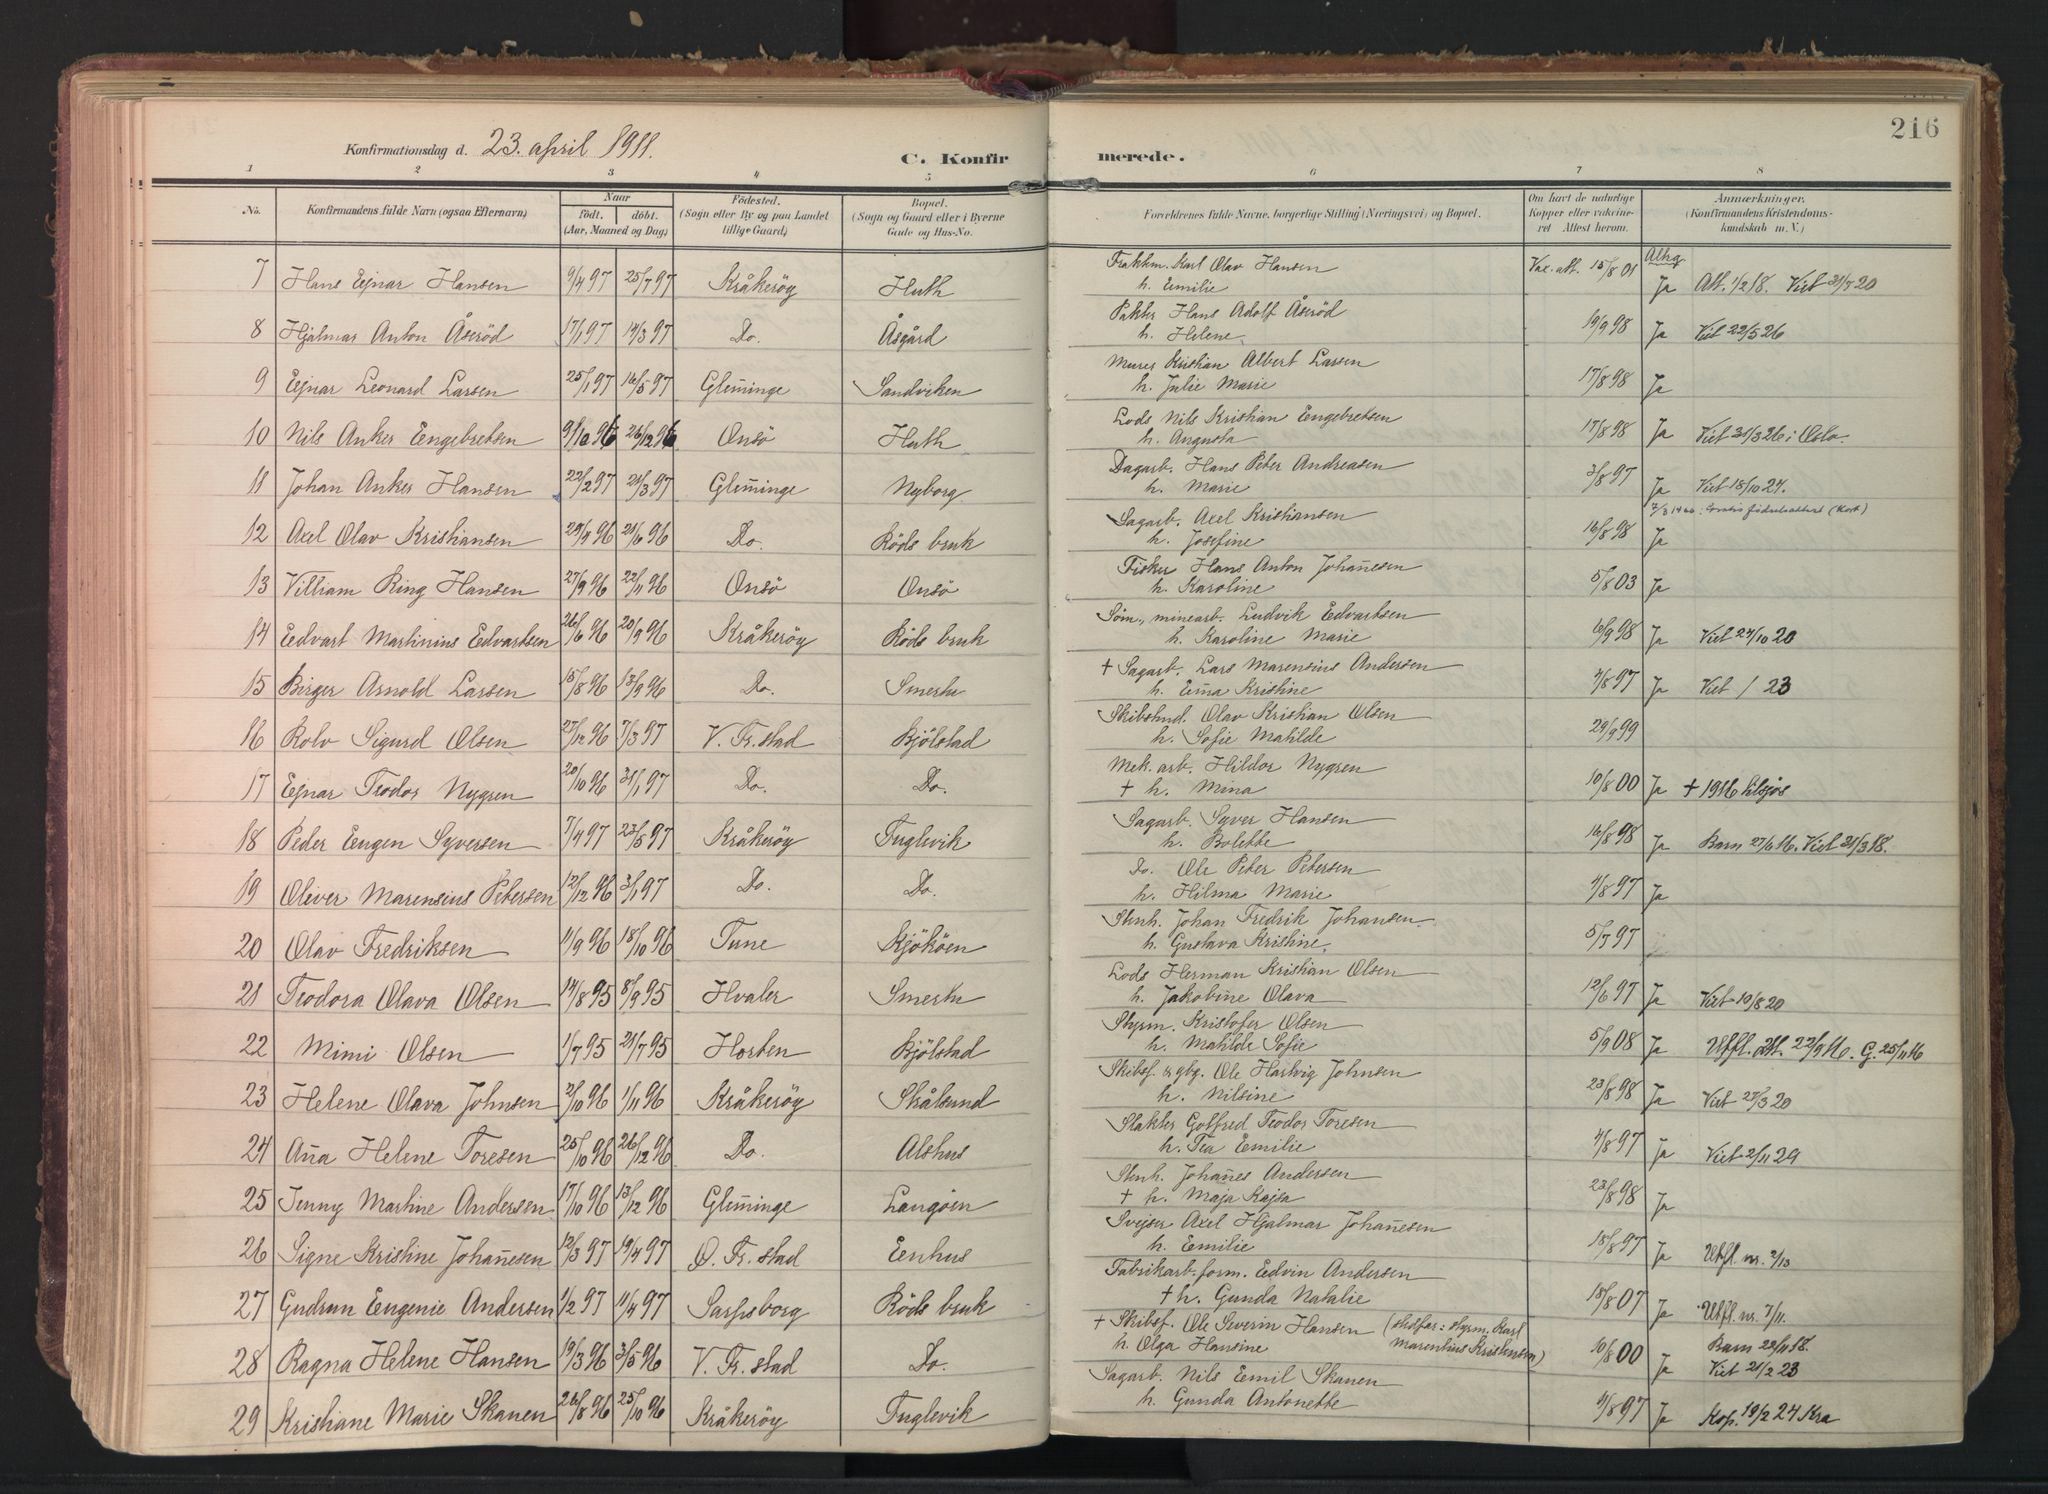 216
Konfirmationsdag d. 23. april 1911.
C. Konfirmerede.
1 2 3 4 5 6 7 8
No. Konfirmandens fulde Navn (ogsaa Efternavn) Naar födt. döbt. (Aar, Maaned og Dag) Födested. (Sogn eller By og paa Landet tillige Gaard) Bopæl. (Sogn og Gaard eller i Byerne Gade og Hus-No. Forældrenes fulde Navne, borgerlige Stilling (Næringsvei) og Bopæl. Om havt de naturlige Kopper eller vakcineret Attest herom. Anmærkninger. (Konfirmandens Kristendomskundskab m. V.)
7 Hans Ejnar Hansen 9/4 97 25/7 97 Kråkeröy Huth Fraktm. Karl Olav Hansen h. Emilie Vac. att. 15/8 01 Ja Att. 1/2 18.
8 Hjalmar Anton Åseröd 17/1 97 14/3 97 Do. Åsgård Pakter Hans Adolf Åseröd h. Helene 19/9 98 Ja Viet 22/5 26
9 Ejnar Leonard Larsen 25/1 97 16/5 97 Glem̄inge Sandviken Murer Kristian Albert Larsen h. Julie Marie 17/8 98 Ja
10 Nils Anker Engebretsen 26/12 96 Onsö Huth Lods Nils Kristian Engebretsen h. Augusta 17/8 98 Ja Viet 31/3 26 i Oslo.
11 Johan Anker Hansen 22/2 97 21/3 97 Glem̄inge Nyborg Dagarb. Hans Peter Andreasen h. Marie 3/8 97 Ja Viet 18/10 24.
12 Axel Olav Kristiansen 29/4 96 21/6 96 Do. Röds bruk Sagarb. Axel Kristiansen h. Josefine 16/8 98 Ja
13 Villiam Ring Hansen 27/9 96 22/11 96 Onsö Onsö Fisker Hans Anton Johan̄esen h. Karoline 5/8 03 Ja
14 Edvart Martinius Edvartsen 26/6 96 20/9 96 Kråkeröy Röds bruk Söm., minearb. Ludvik Edvartsen h. Karoline Marie 6/9 98 Ja Viet 27/10 20
15 Birger Arnold Larsen 15/8 96 13/9 96 Do. Smertu + Sagarb. Lars Marensius Andersen h. Em̄a Kristine 4/8 97 Ja Viet / 23
16 Rolv Sigurd Olsen 27/12 96 7/3 97 V. Fr.stad Bjölstad Skibstmd. Olav Kristian Olsen h. Sofie Matilde 29/9 99
17 Ejnar Teodor Nygren 20/10 96 31/1 97 Do. Do. Mek. arb. Hildor Nygren + h. Mina 10/8 00 Ja + 1916 tilsjös
18 Peder Eugen Syversen 7/4 97 23/5 97 Kråkeröy Fuglevik Sagarb. Syver Hansen h. Bolette 16/8 98 Ja Barn 27/1 16. Viet 31/3 18.
19 Oliver Marensius Petersen 12/12 96 3/1 97 Do. Do. Do. Ole Peter Petersen h. Hilma Marie 4/8 97 Ja
20 Olav Fredriksen 11/9 96 18/10 96 Tune Kjököen Stenh. Johan Fredrik Johansen h. Gustava Kristine 5/7 97
21 Teodora Olava Olsen 14/8 95 8/9 95 Hvaler Smertu Lods Herman Kristian Olsen h. Jakobine Olava 12/6 97 Ja Viet 10/8 20
22 Mimi Olsen 1/7 95 21/7 95 Horten Bjölstad Styrm. Kristofer Olsen h. Matilde Sofie 5/9 08 Ja Utfl. Att. 22/9 16. G. 25/11 16
23 Helene Olava Johnsen 2/10 96 1/11 96 Kråkeröy Skålsund Skibsf. & gbg. Ole Hartvig Johnsen h. Nilsine 23/8 98 Ja Viet 27/3 20
24 An̄a Helene Toresen 25/10 96 26/12 96 Do. Alshus Slakter Gotfred Teodor Toresen h. Tea Emilie 4/8 97 Ja Viet 2/11 29
25 Jenny Martine Andersen 17/10 96 13/12 96 Glem̄inge Langöen Stenh. Johan̄es Andersen + h. Maja Kajsa 23/8 98 Ja
26 Signe Kristine Johan̄esen 12/3 97 19/4 97 O. Fr. stad Enhus Svejser Axel Hjalmar Johan̄esen h. Emilie 18/8 97 Ja Utfl. nr. 2/13
27 Gudrun Eugenie Andersen 1/2 97 11/4 97 Sarpsborg Röds bruk Fabrikarb.form. Edvin Andersen + h. Gunda Natalie 18/8 07 Ja Utfl. nr. 7/11.
28 Ragna Helene Hansen 19/3 96 3/5 96 V. Fr. stad Do. + Skibsf. Ole Severin Hansen (stifar: styrm. Karl Marentius Kristensen) h. Olga Hansine 10/8 00 Ja Barn 22/11 18. Viet 21/2 23
29 Kristiane Marie Skanen 26/8 96 25/10 96 Kråkeröy Fuglevik Sagarb. Nils Emil Skanen h. Gunda Antonette 4/8 97 Ja Kop. 19/2 24 Kra